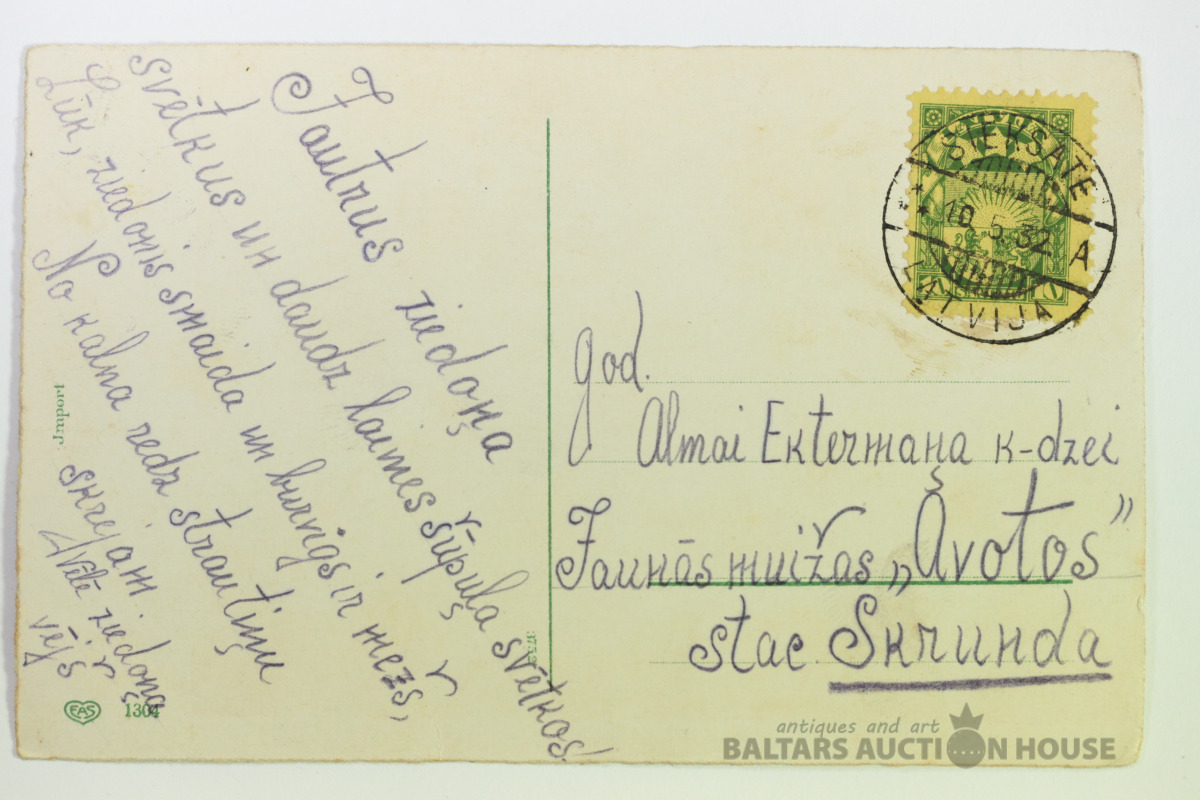 Jautrus ziedoņa
svētkus un daudz laimes šūpuļa svētkos!
Lūk, ziedonis smaida un burvīgs ir mežs,
No kalna redz strautiņu
skrejam.
Vītē ziedoņa
vējš
Import
EAS 1304
SIEKSĀTE
10.5.32 A
LATVIJA
god.
Almai Ektermaņa k-dzei
Jaunās muižas „Avotos"
stac. Skrunda
antiques and art
BALTARS AUCTION HOUSE